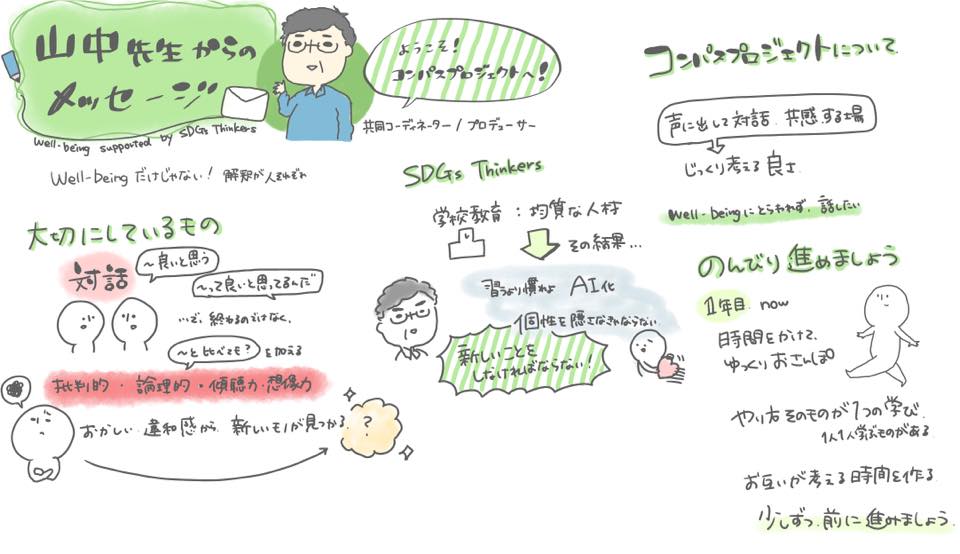 山中先生からの
メッセージ
Well-being supported by SDGs Thinkers
ようこそ!
コンパスプロジェクトへ!
共同コーディネーター / プロデューサー
Well-beingだけじゃない! 解釈が人それぞれ
大切にしているもの
対話
~良いと思う
~って良いと思ってるんだ
…で、終わるのではなく、
~と比べても? を加える
批判的・論理的・傾聴力・想像力
おかしい 違和感から 新しいモノが見つかる
?
SDGs Thinkers
学校教育 : 均質な人材
その結果…
習うより慣れよ AI化
個性を隠さなきゃならない
新しいことを
しなければならない!
コンパスプロジェクトについて
声に出して対話 共感する場
じっくり考える良さ
well-beingにとらわれず、話したい
のんびり進めましょう
1年目 now
時間をかけて、
ゆっくりおさんぽ
やり方そのものが1つの学び
1人1人学ぶものがある
お互いが考える時間を作る
少しずつ前に進めましょう